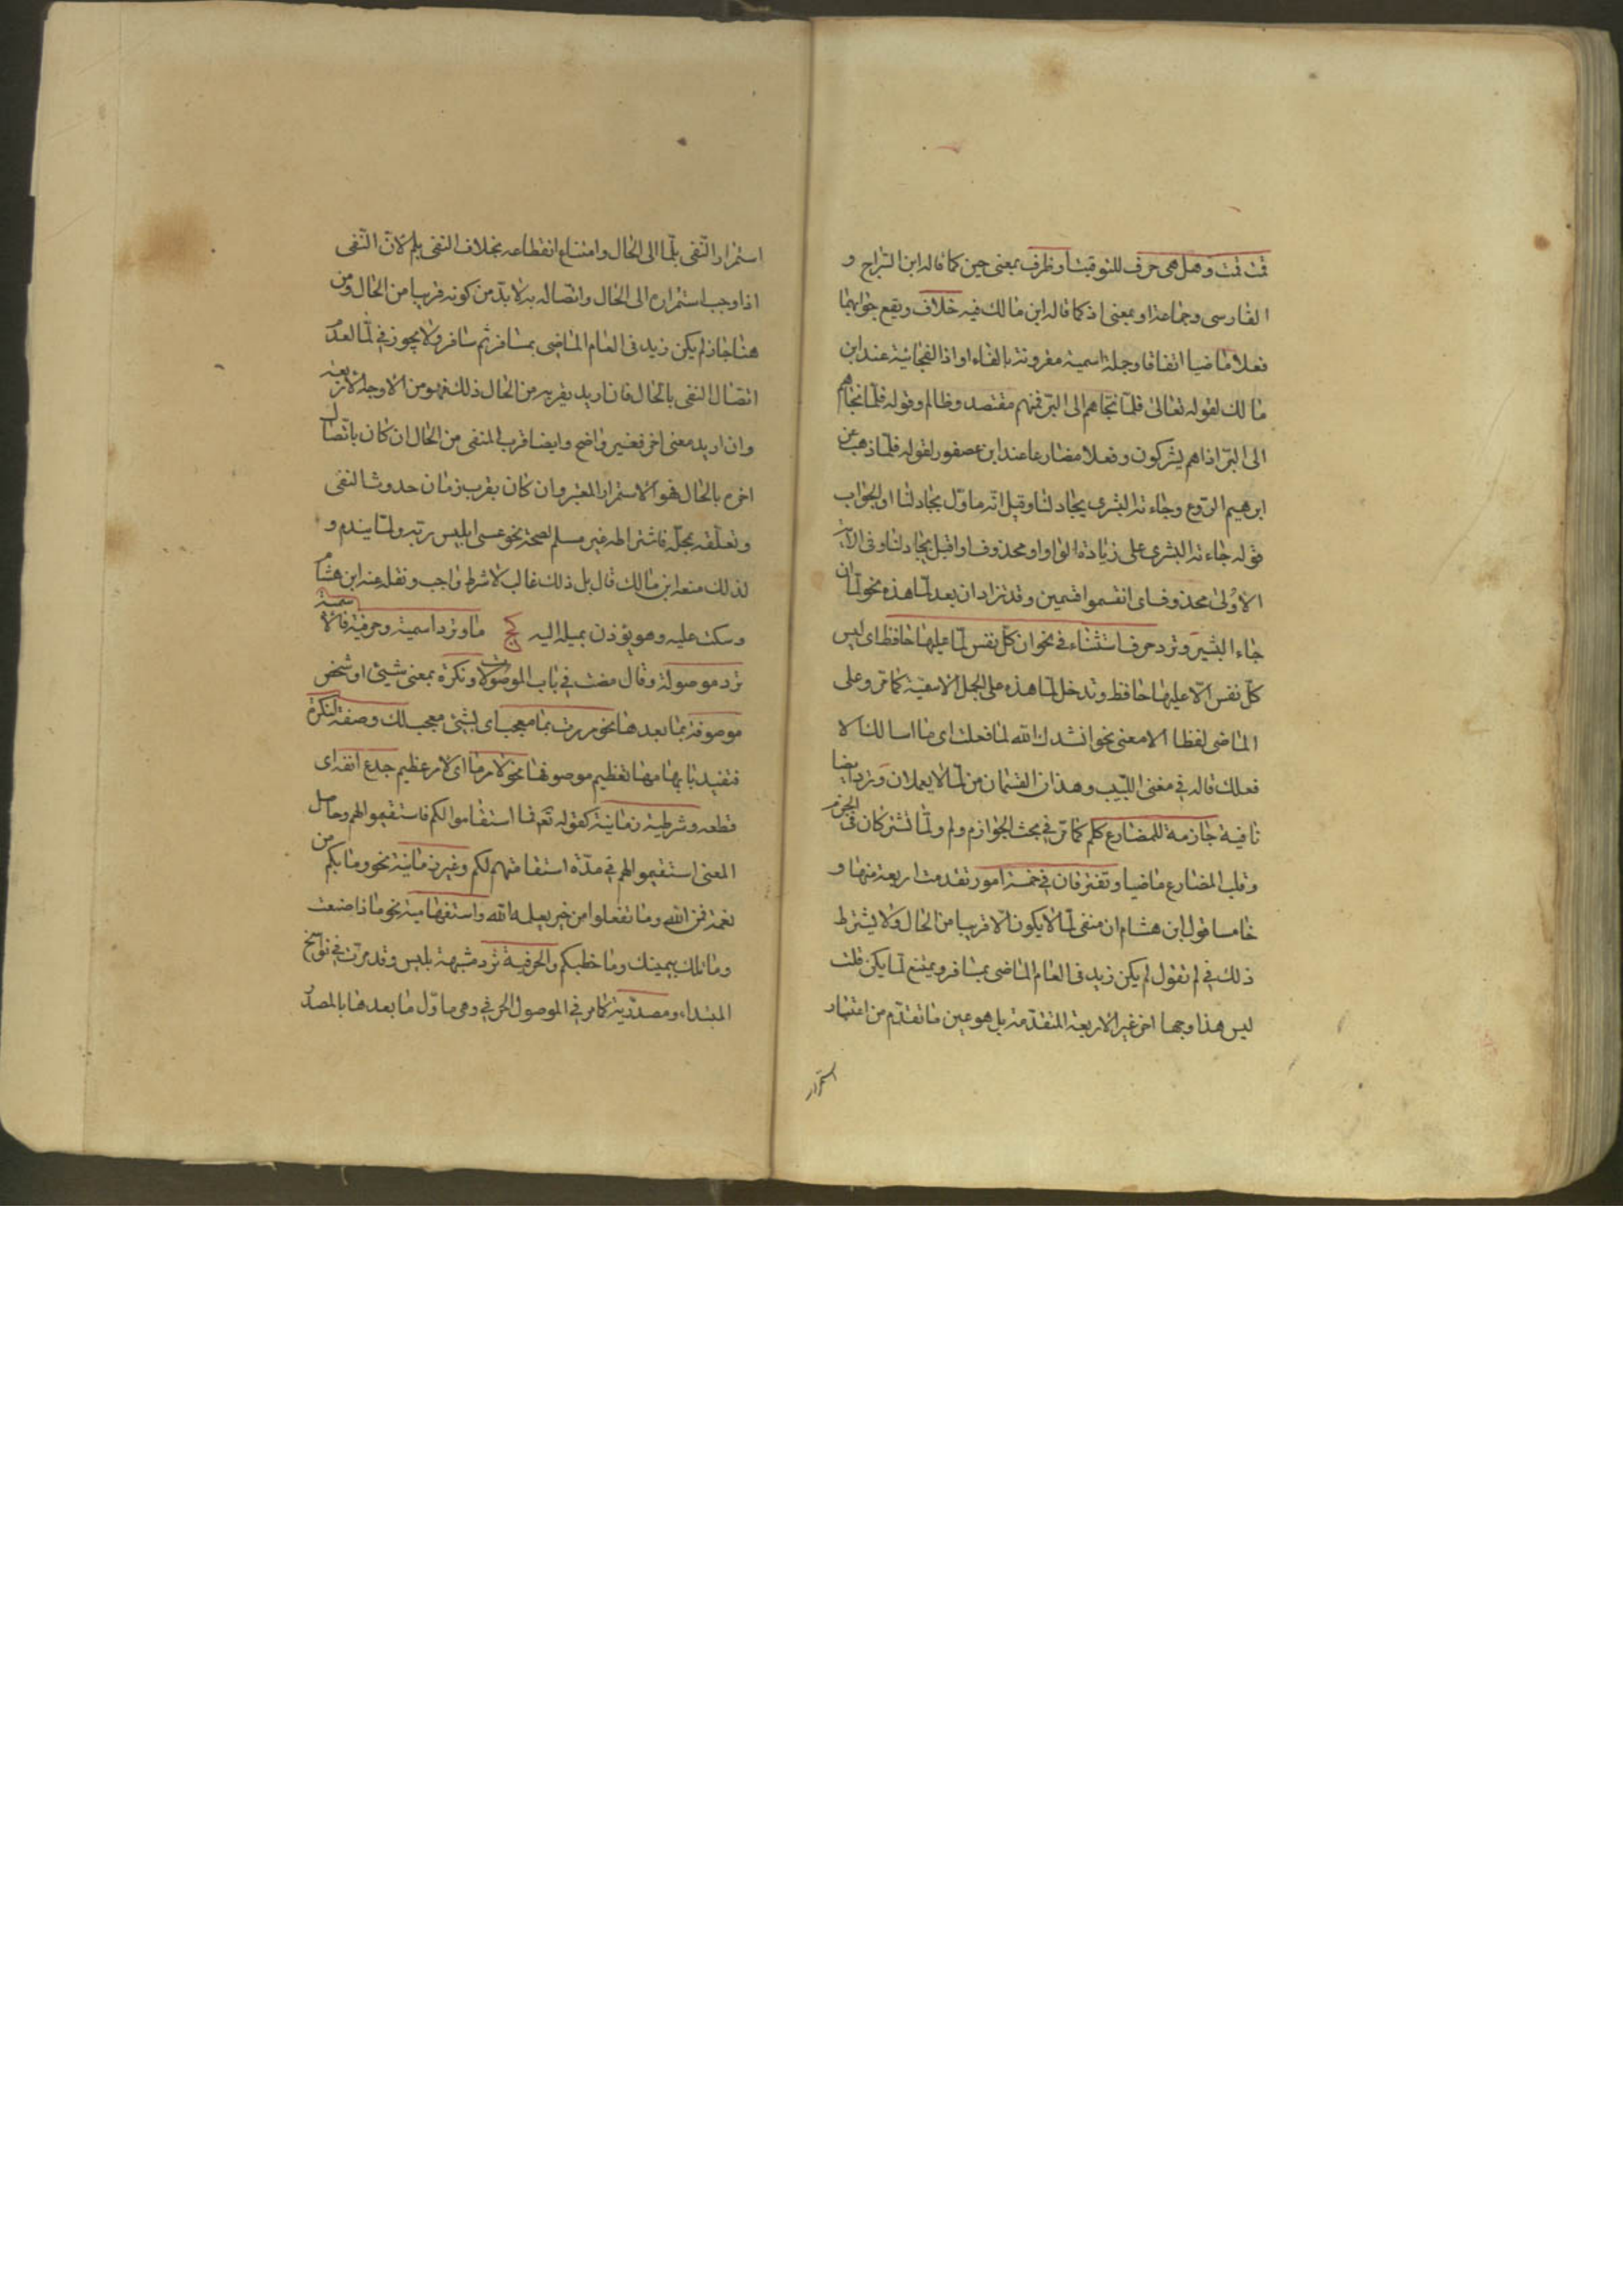 قت قمت وهل هى حرف للتوقيت او ظرف بمعنى حين كما قاله ابن السراج و
الفارسى وجماعة او بمعنى اذ كما قاله ابن مالك فيه خلاف ويقع جوابهما
فعلا ماضيا اتفاقا وجملة اسمية مقرونة بالفاء او اذا الفجائية عند ابن
مالك لقوله تعالى فلما نجاهم الى البر فمنهم مقتصد وظالم وقوله فلما نجاهم
الى البر اذا هم يشركون وفعلا مضارعا عند ابن عصفور لقوله فلما ذهب عن
ابرهيم الروع وجاءته البشرى يجادلنا وقيل انه ماول بجادلنا او الجواب
قوله جاءته البشرى على زيادة الواو او محذوف او اقبل يجادلنا وفى الآية
الاولى محذوف اى انقسموا قسمين وقد تزاد ان بعد لما هذه نحو لما ان
جاء البشير وترد حرف استثناء فى نحو ان كل نفس لما عليها حافظ اى ليس
كل نفس الا عليها حافظ وتدخل لما هذه على الجمل الاسمية كما مر وعلى
الماضى لفظا لا معنى نحو انشدك الله لما فعلت اى ما اسالك الا
فعلك قاله فى مغنى اللبيب وهذان القسمان من لما لا يعملان وترد ايضا
نافية جازمة للمضارع كلم كما مر فى بحث الجوازم ولم ولما تشتركان فى الجزم
وقلب المضارع ماضيا وتفترقان فى خمسة امور تقدمت اربعة منها و
خامسا قول ابن هشام ان منفى لما لا يكون الا قريبا من الحال ولا يشترط
ذلك فى لم تقول لم يكن زيد فى العام الماضى بمسافر ويمتنع لما يكن قلت
ليس هذا وجها اخر غير الاربعة المتقدمة بل هو عين ما تقدم من اعتبار
استمرار
استمرار النفى بلما الى الحال وامتناع انقطاعه بخلاف النفى بلم لان النفى
اذا وجب استمراره الى الحال واتصاله به لابد من كونه قريبا من الحال ومن
هنا جاز لم يكن زيد فى العام الماضى بمسافر ثم سافر ولا يجوز فى لما لعدم
اتصال النفى بالحال فان اريد بقربه من الحال ذلك فهو من الاوجه الاربعة
وان اريد معنى اخر فغير واضح وايضا قرب المنفى من الحال ان كان باتصال
اخره بالحال فهو الاستمرار المعتبر وان كان بقرب زمان حدوث النفى
وتعلقه بمحله فاشتراطه غير مسلم لصحة نحو عسى ابليس ربه ولما يندم و
لذلك منعه ابن مالك قال بل ذلك غالب لا شرط واجب ونقله عنه ابن هشام
وسكت عليه وهو يؤذن بميله اليه ما وترد اسمية وحرفية فالاسمية
ترد موصولة وقال مضت فى باب الموصولات ونكرة بمعنى شيئ او شخص
موصوفة بما بعدها نحو مررت بما معجب اى بشيئ معجب لك وصفة لنكرة
فتفيد بابهامها تعظيم موصوفها نحو لامر ما اى لامر عظيم جدع انفه اى
قطعه وشرطية زمانية كقوله تع فما استقاموا لكم فاستقيموا لهم وحاصل
المعنى استقيموا لهم فى مدة استقامتهم لكم وغير زمانية نحو وما بكم من
نعمة فمن الله وما تفعلوا من خير يعلمه الله واستفهامية نحو ماذا صنعت
وما تلك بيمينك وما خطبكم والحرفية ترد مشبهة بليس وقد مرت فى نواسخ
المبتداء ومصدرية كما مر فى الموصول الحرفى وهى ماول ما بعدها بالمصدر